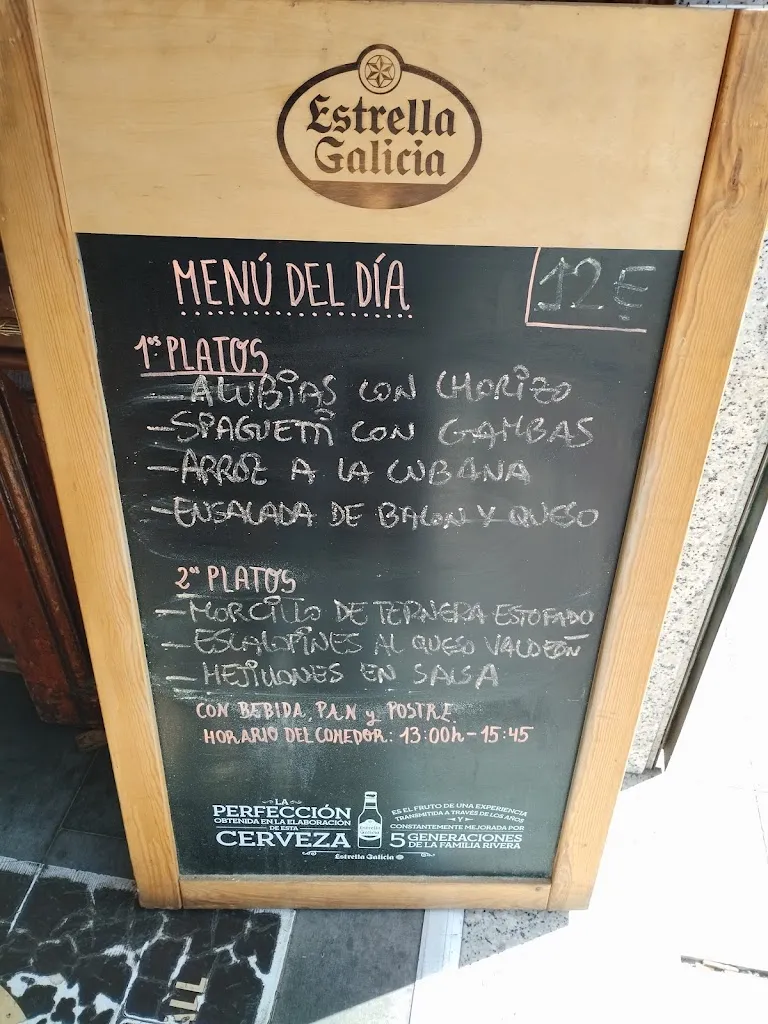 Estrella
Galicia
MENÚ DEL DÍA
12€
1os PLATOS
- ALUBIAS CON CHORIZO
- SPAGUETTI CON GAMBAS
- ARROZ A LA CUBANA
- ENSALADA DE BACON Y QUESO
2os PLATOS
- MORCILLO DE TERNERA ESTOFADO
- ESCALOPINES AL QUESO VALDEÓN
- MEJILLONES EN SALSA
CON BEBIDA, PAN y POSTRE.
HORARIO DEL COMEDOR: 13:00h - 15:45
LA
PERFECCIÓN
OBTENIDA EN LA ELABORACIÓN
DE ESTA
CERVEZA
ES EL FRUTO DE UNA EXPERIENCIA
TRANSMITIDA A TRAVÉS DE LOS AÑOS
Y
CONSTANTEMENTE MEJORADA POR
5 GENERACIONES
DE LA FAMILIA RIVERA
Estrella Galicia